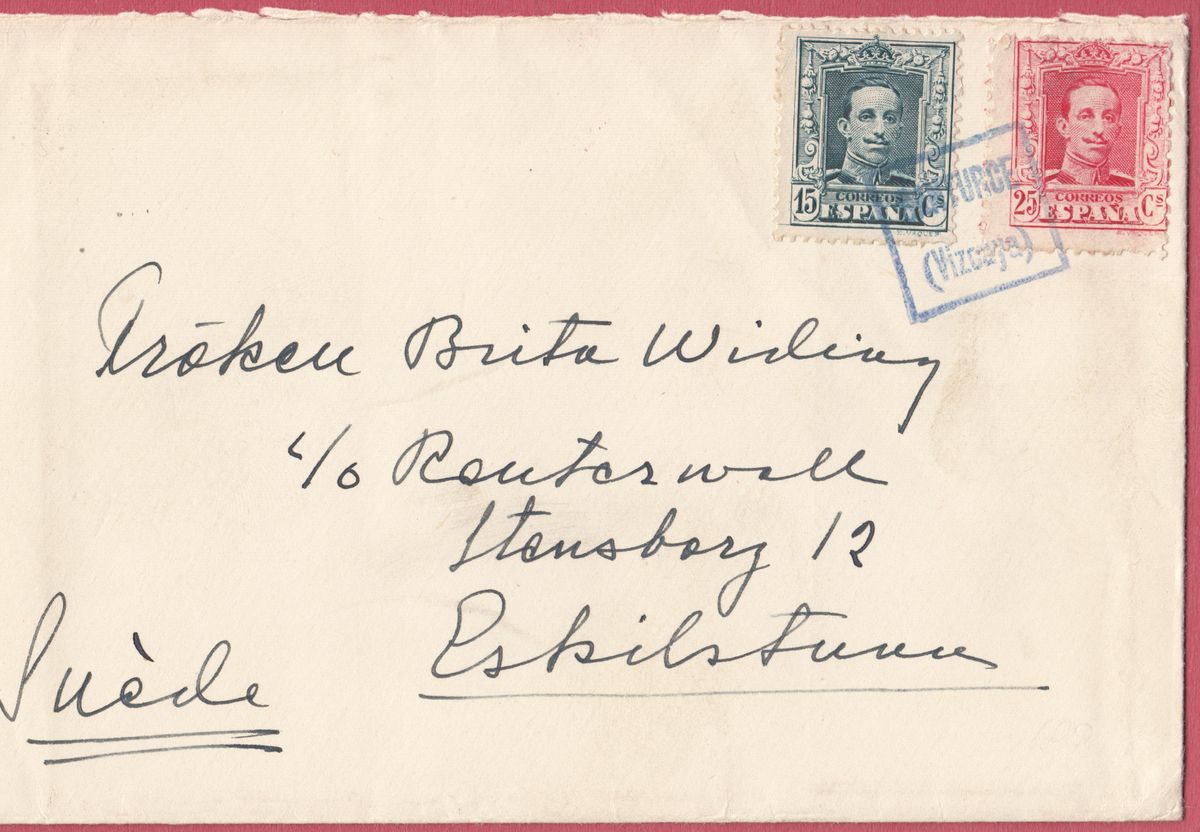 15 Cs
CORREOS
ESPAÑA
25 Cs
CORREOS
ESPAÑA
(Vizcaya)
Fröken Brita Widing
c/o Reuterwall
Stensborg 12
Eskilstuna
Suède